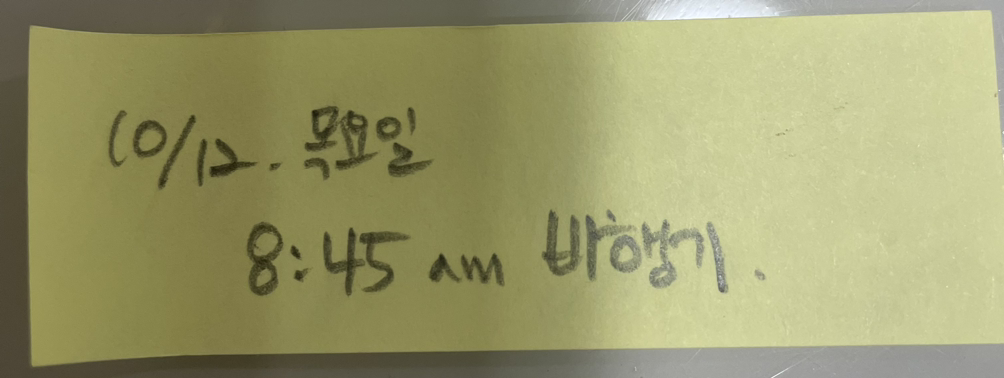 10/12. 목요일
8:45 am 비행기.